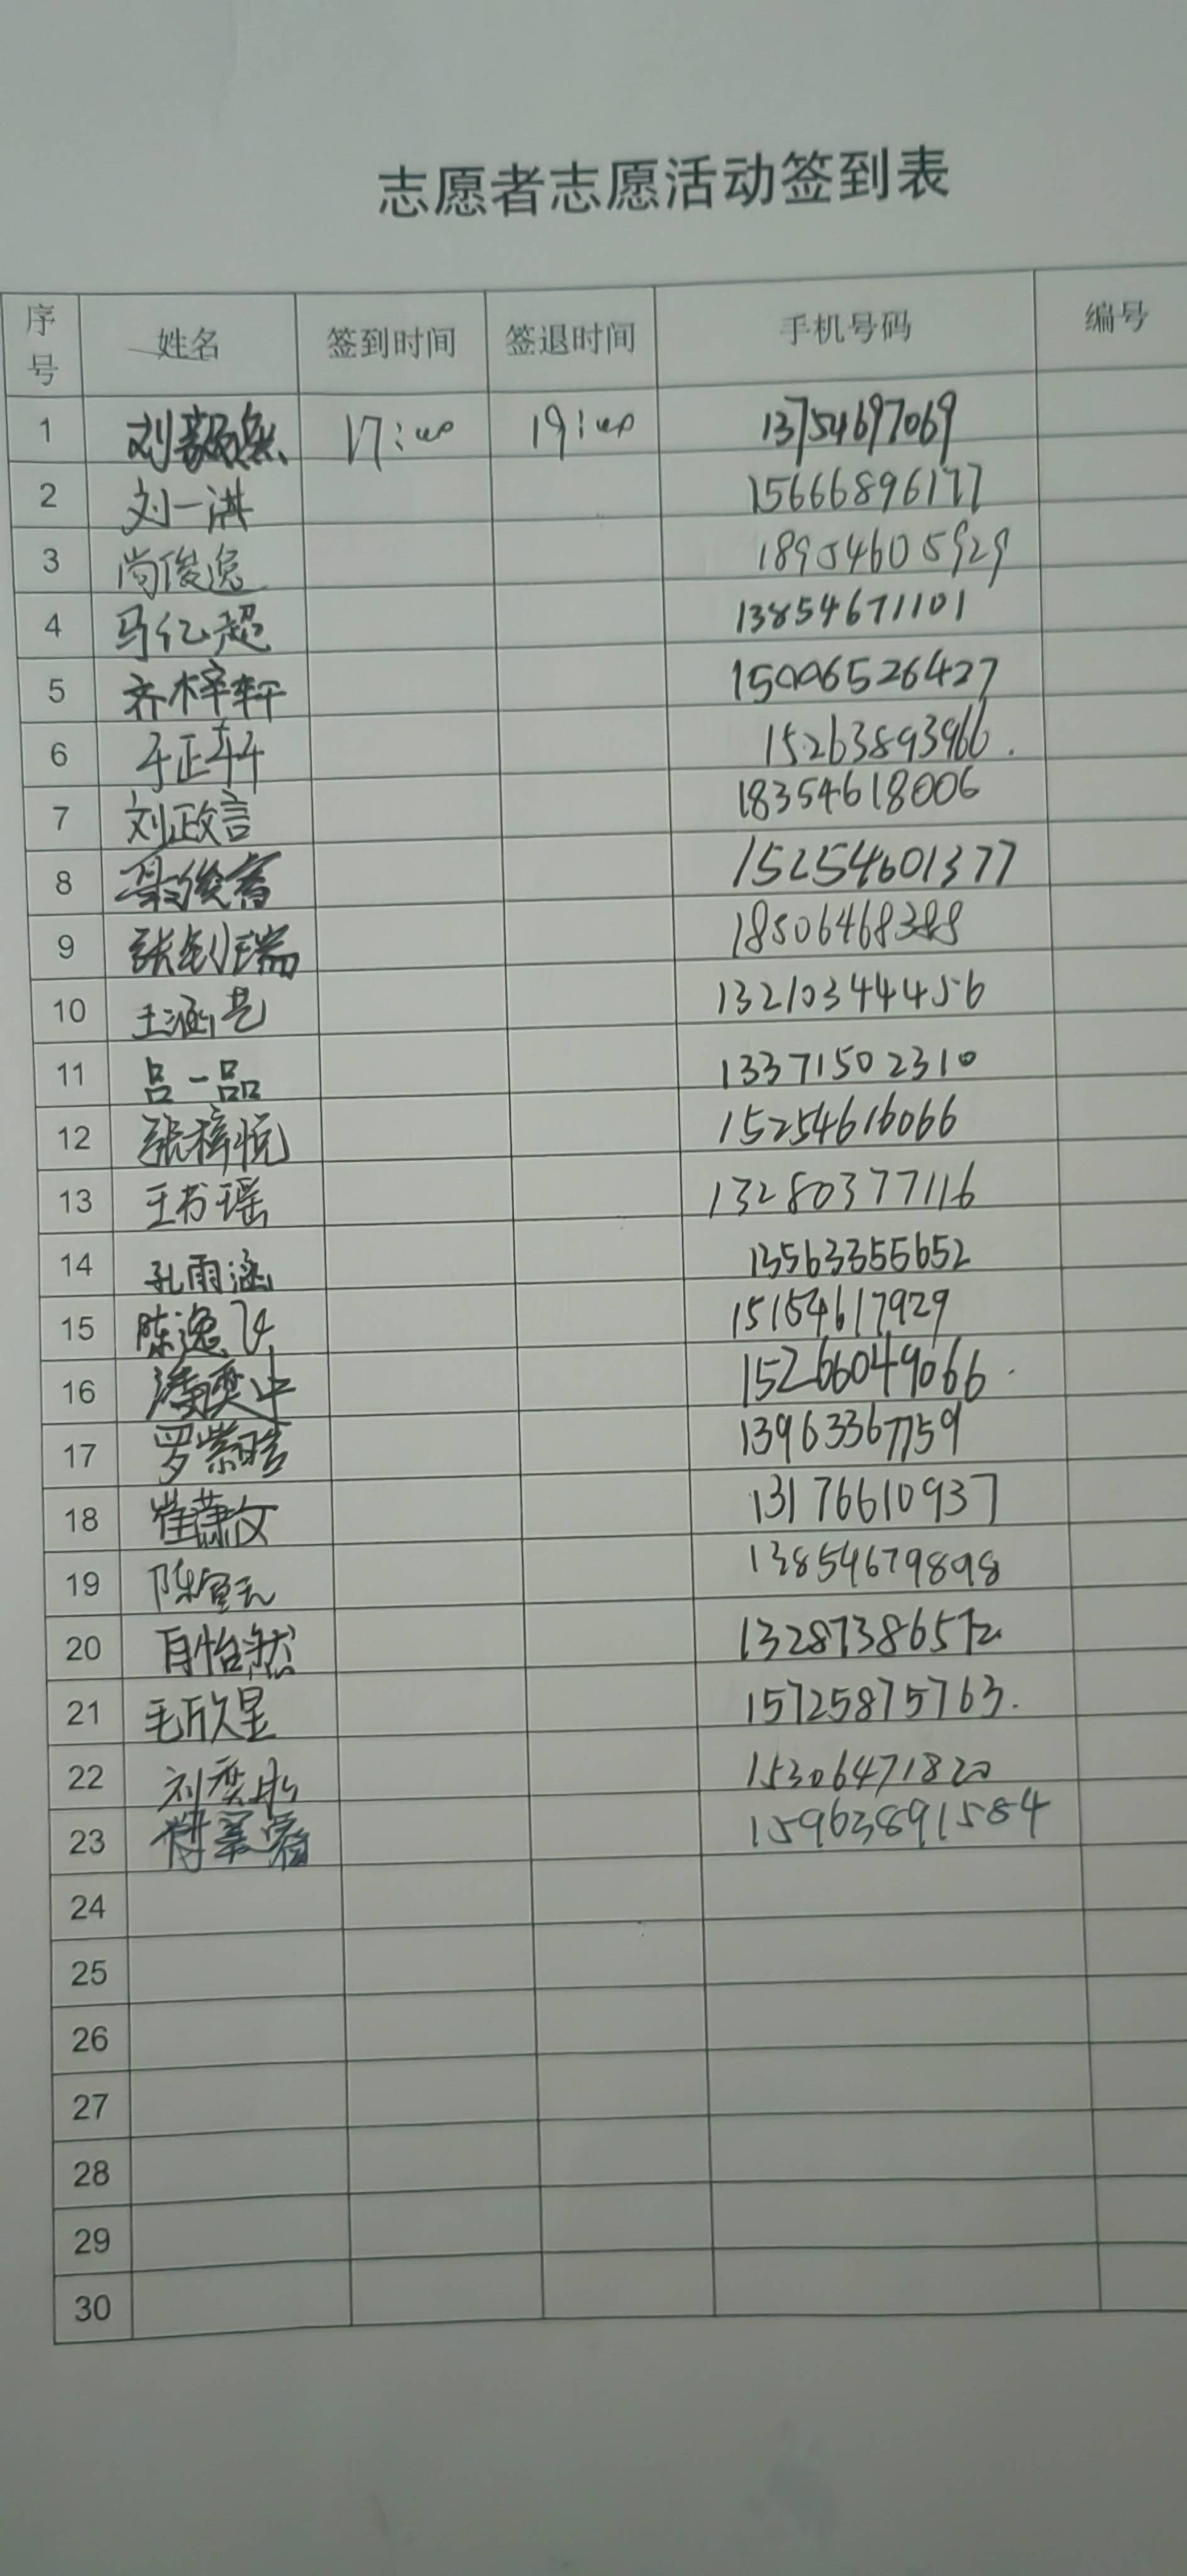 志愿者志愿活动签到表
序号 姓名 签到时间 签退时间 手机号码 编号
1 刘颢然 17:00 19:00 13754697069
2 刘一洪 15666896177
3 尚俊逸 18954605929
4 马亿超 13854671101
5 齐梓轩 15006526427
6 于正轩 15263893966.
7 刘政言 18354618006
8 俊睿 15254601377
9 张钊瑞 18506468388
10 王涵艺 13210344456
11 吕一品 13371502310
12 张梓悦 15254616066
13 王书瑶 13280377116
14 孔雨涵 13563355652
15 陈逸飞 15154617929
16 潘奕中 15266049066.
17 罗紫晴 13963367759
18 崔潇文 13176610937
19 陈 13854679898
20 肖怡然 1328738657
21 毛欣星 15725875763.
22 刘奕 15306471820
23 15963891584
24
25
26
27
28
29
30